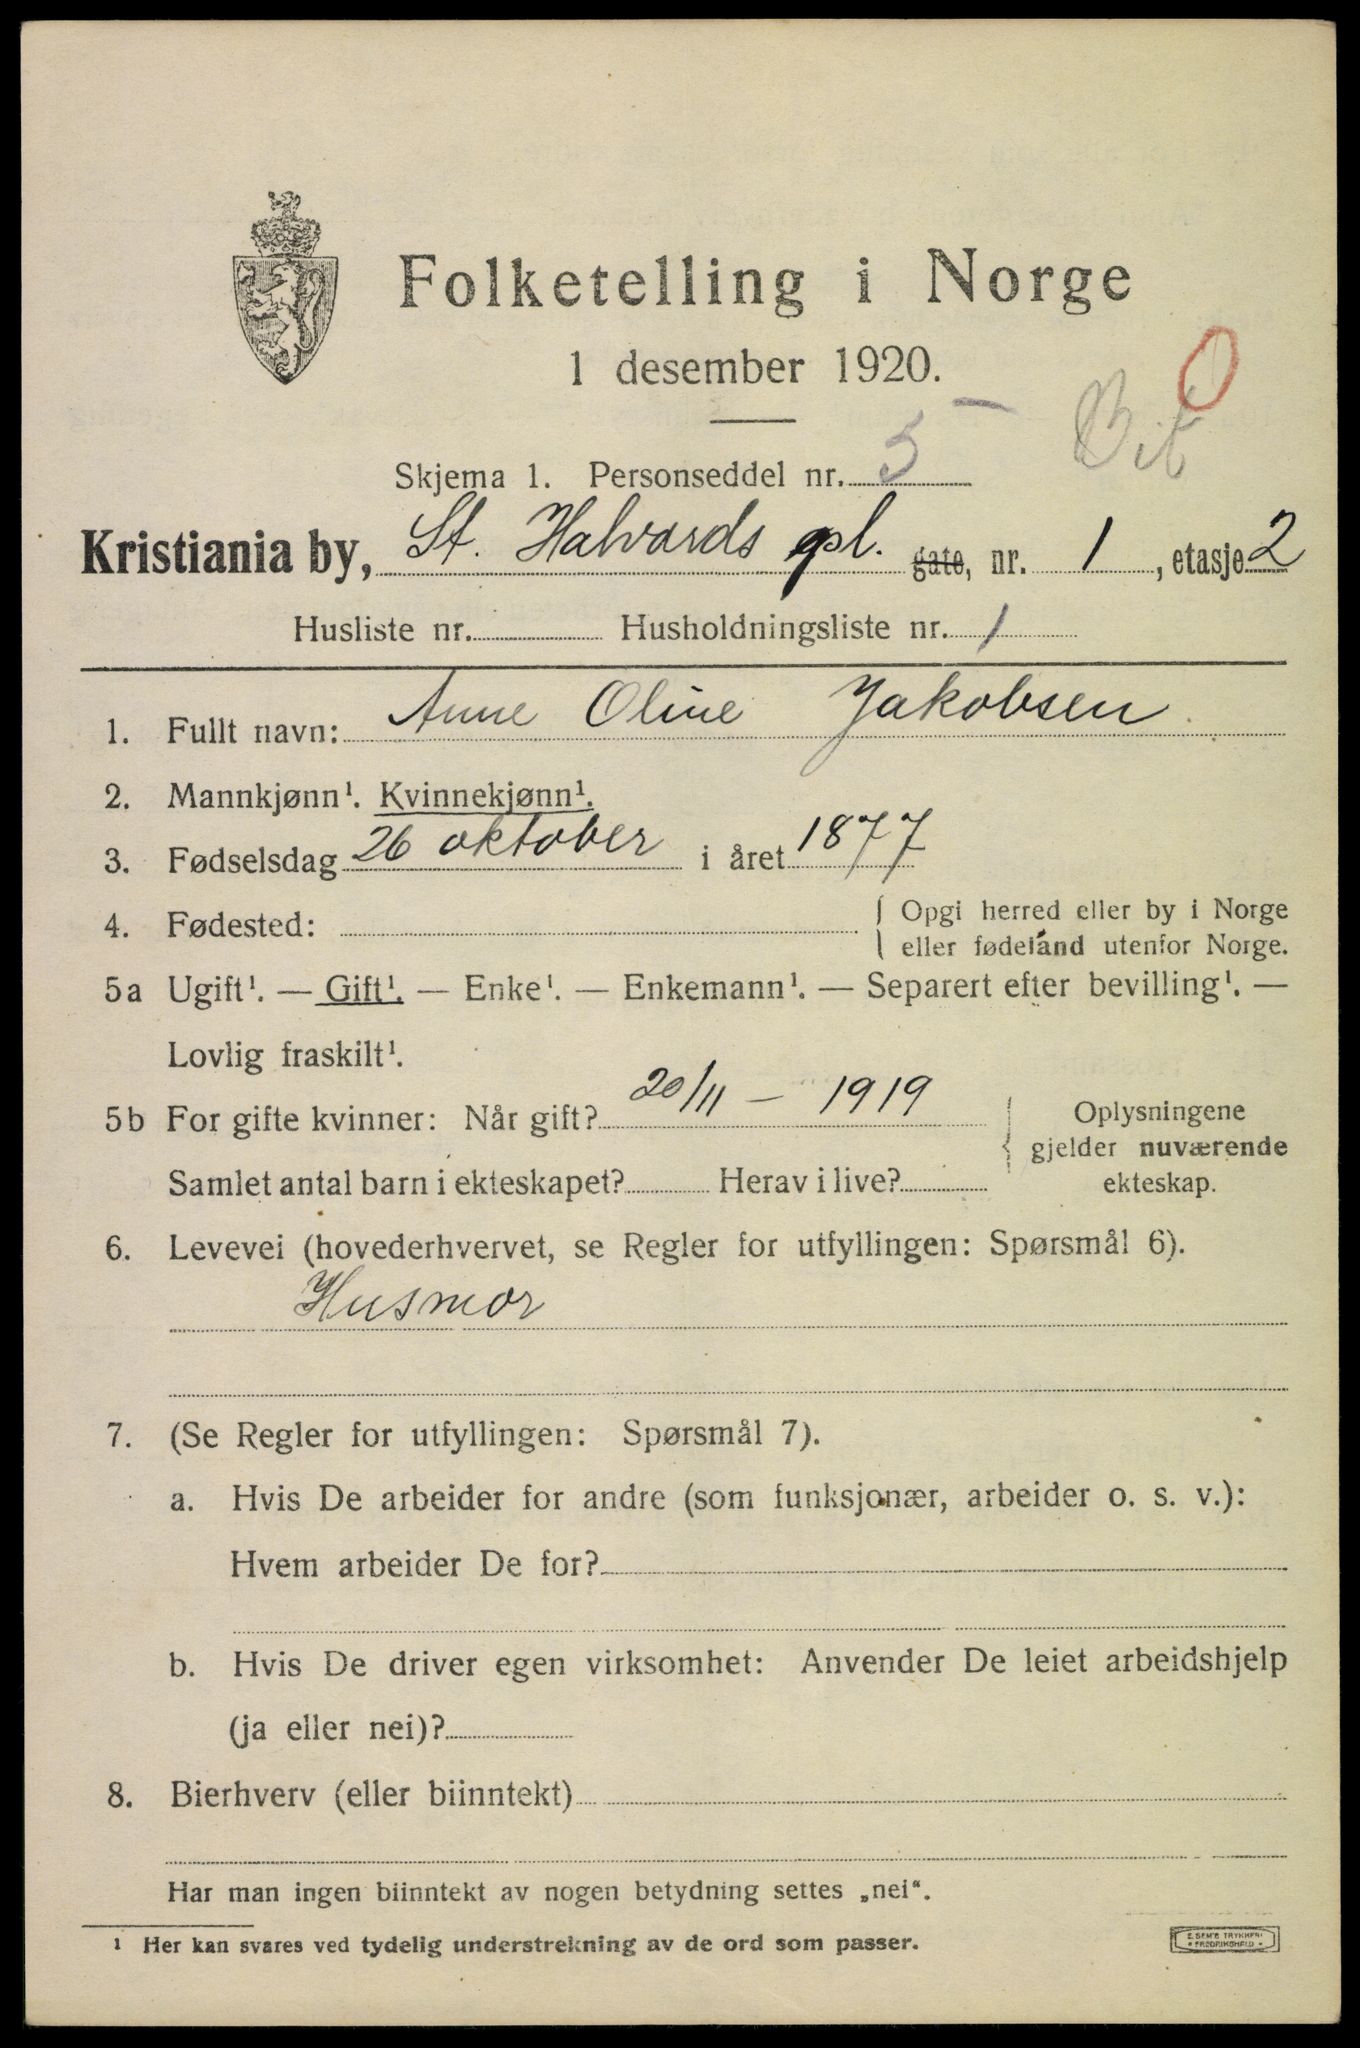 Folketelling i Norge
1 desember 1920.
Skjema 1. Personseddel nr. 5
Kristiania by, St. Halvards pl. gate, nr. 1, etasje 2
Husliste nr. Husholdningsliste nr. 1
1. Fullt navn: Anne Oline Jakobsen
2. Mannkjønn¹. Kvinnekjønn¹.
3. Fødselsdag 26 oktober i året 1877
4. Fødested: { Opgi herred eller by i Norge
eller fødeland utenfor Norge.
5a Ugift¹. — Gift¹. — Enke¹. — Enkemann¹. — Separert efter bevilling¹. —
Lovlig fraskilt¹.
5b For gifte kvinner: Når gift? 20/11 – 1919
Samlet antal barn i ekteskapet? Herav i live?
Oplysningene
gjelder nuværende
ekteskap.
6. Levevei (hovederhvervet, se Regler for utfyllingen: Spørsmål 6).
Husmor
7. (Se Regler for utfyllingen: Spørsmål 7).
a. Hvis De arbeider for andre (som funksjonær, arbeider o. s. v.):
Hvem arbeider De for?
b. Hvis De driver egen virksomhet: Anvender De leiet arbeidshjelp
(ja eller nei)?
8. Bierhverv (eller biinntekt)
Har man ingen biinntekt av nogen betydning settes „nei“.
¹ Her kan svares ved tydelig understrekning av de ord som passer.
E. SEM'S TRYKKERI
FREDRIKSHALD